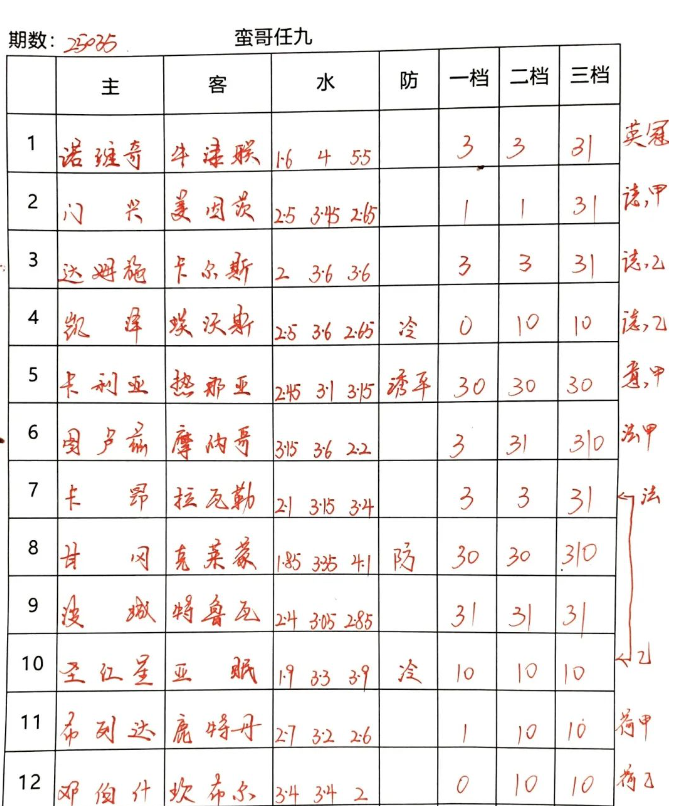 期数: 25035 蛮哥任九
主 客 水 防 一档 二档 三档
1 诺维奇 牛津联 1.6 4 5.5 3 3 31 英冠
2 门兴 美因茨 2.5 3.45 2.65 1 1 31 德,甲
3 达姆施 卡尔斯 2 3.6 3.6 3 3 31 德,乙
4 凯泽 埃沃斯 2.5 3.6 2.65 冷 0 10 10 德,乙
5 卡利亚 热那亚 2.45 3.1 3.15 诱平 30 30 30 意,甲
6 图卢兹 摩纳哥 3.15 3.6 2.2 3 31 310 法甲
7 卡昂 拉瓦勒 2.1 3.15 3.4 3 3 31 法
8 甘冈 克莱蒙 1.85 3.35 4.1 防 30 30 310
9 波城 特鲁瓦 2.4 3.05 2.85 31 31 31
10 圣红星 亚眠 1.9 3.3 3.9 冷 10 10 10 乙
11 布列达 鹿特丹 2.7 3.2 2.6 1 10 10 荷甲
12 邓伯什 坎布尔 3.4 3.4 2 0 10 10 荷乙